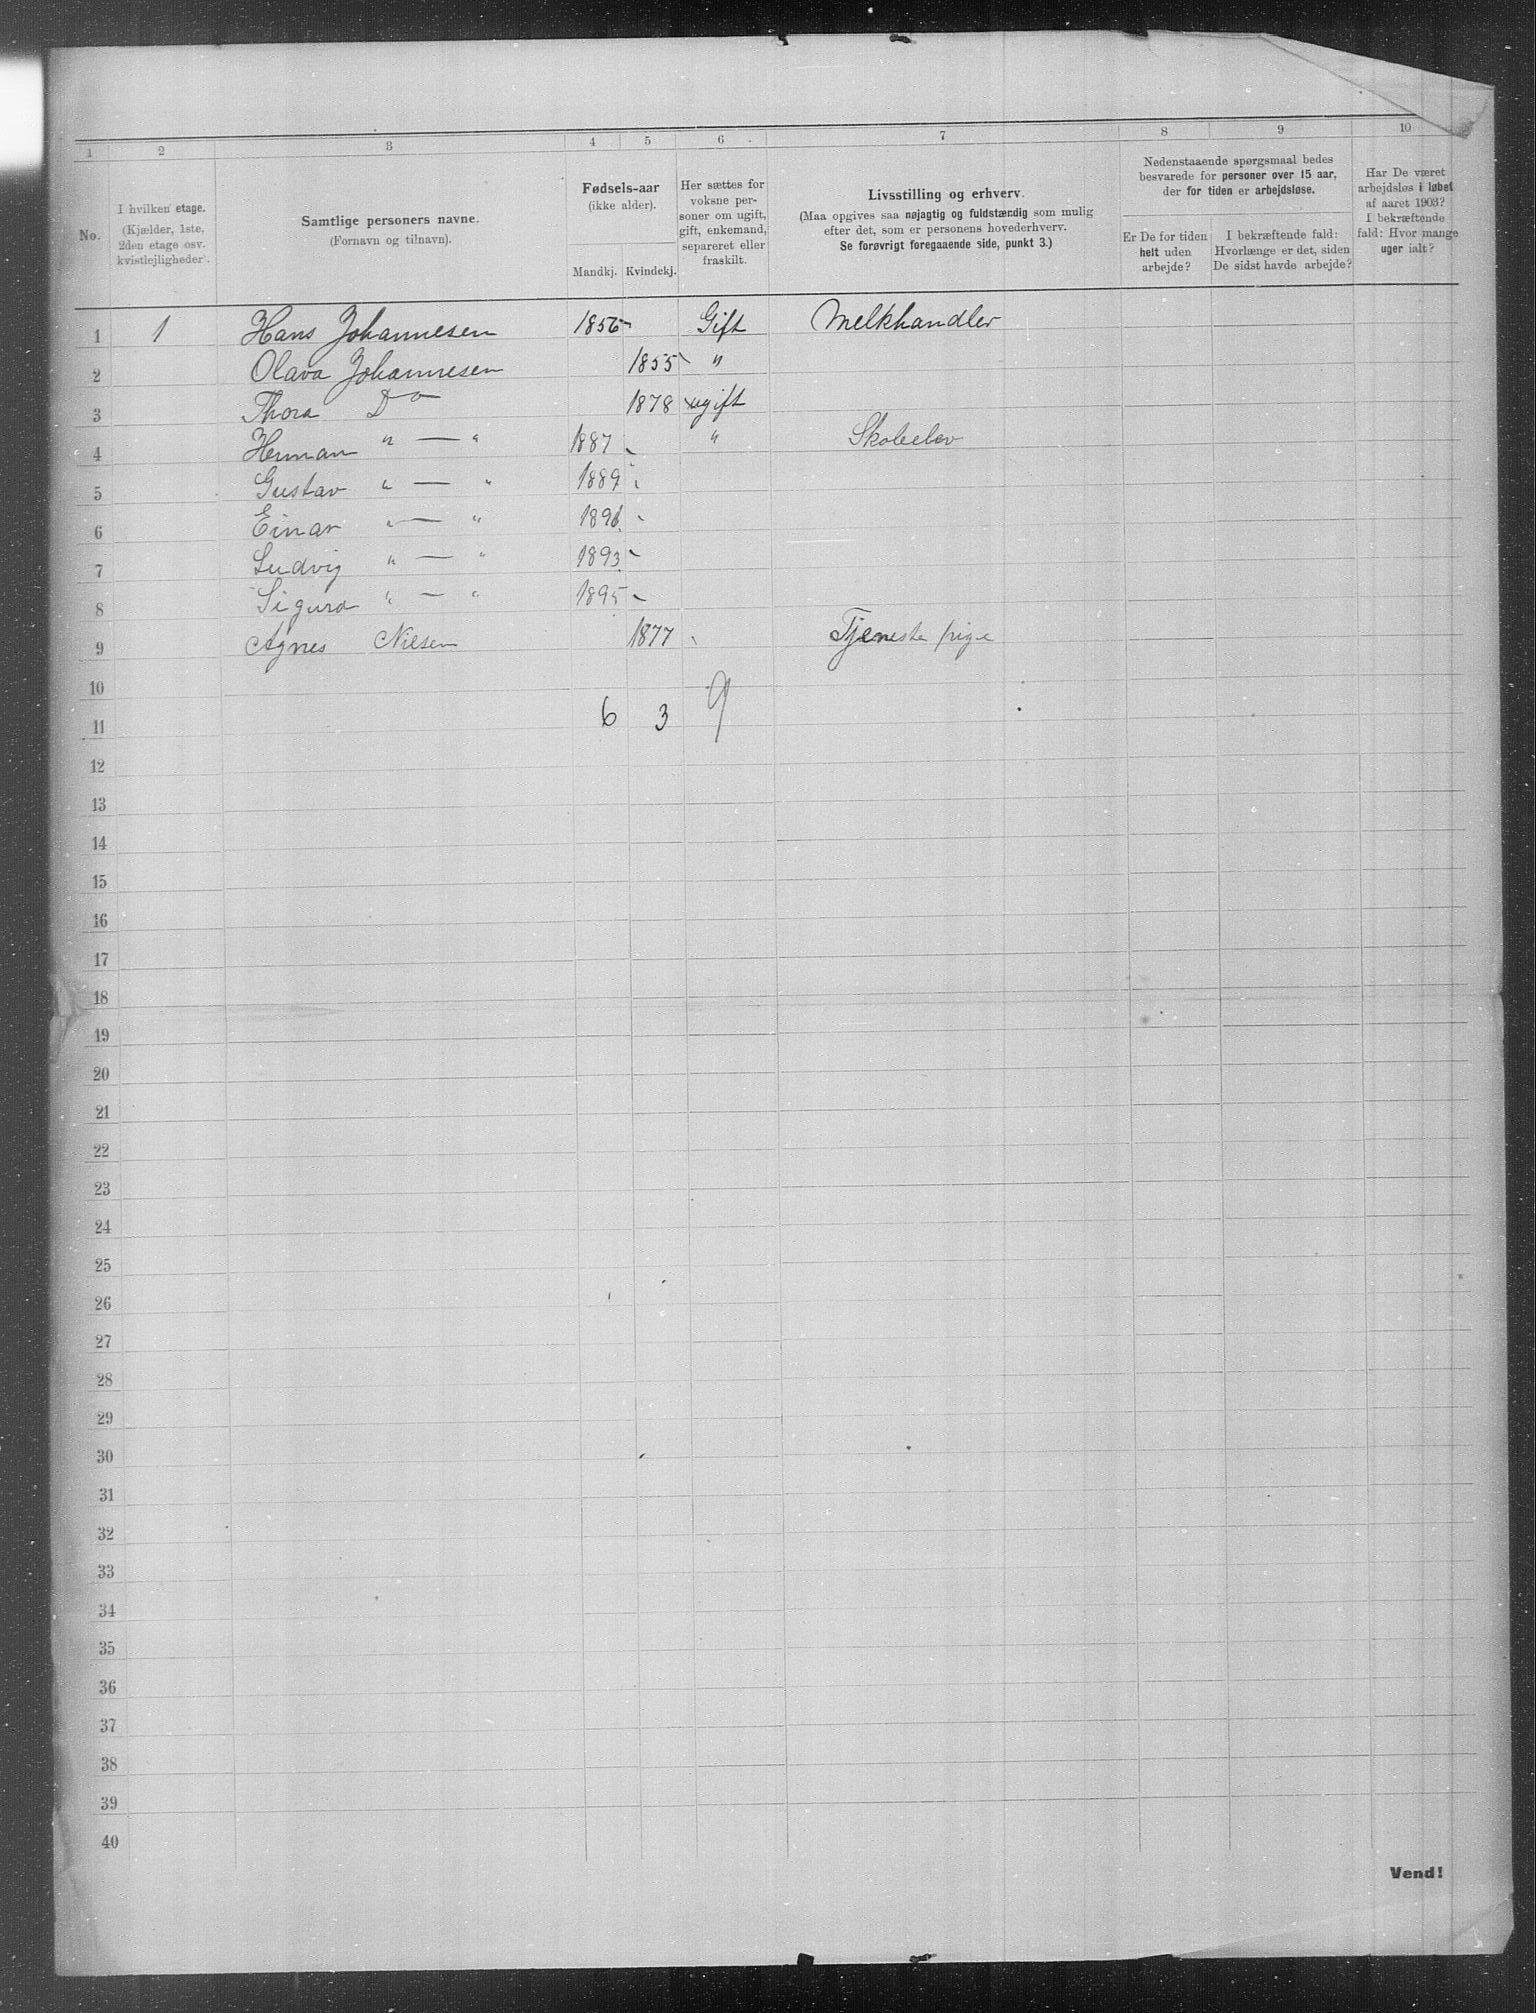 1 2 3 4 5 6 7 8 9 10
No.
I hvilken etage.
(Kjælder, 1ste,
2den etage osv.
kvistlejligheder).
Samtlige personers navne.
(Fornavn og tilnavn).
Fødsels-aar
(ikke alder).
Mandkj. Kvindekj.
Her sættes for
voksne per-
soner om ugift,
gift, enkemand,
separeret eller
fraskilt.
Livsstilling og erhverv.
(Maa opgives saa nøjagtig og fuldstændig som mulig
efter det, som er personens hovederhverv.
Se forøvrigt foregaaende side, punkt 3.)
Nedenstaaende spørgsmaal bedes
besvarede for personer over 15 aar,
der for tiden er arbejdsløse.
Er De for tiden
helt uden
arbejde?
I bekræftende fald:
Hvorlænge er det, siden
De sidst havde arbejde?
Har De været
arbejdsløs i løbet
af aaret 1903?
I bekræftende
fald: Hvor mange
uger ialt?
1 1 Hans Johannesen 1856 Gift Melkhandler
2 Olava Johannesen 1855 "
3 Thora Do 1878 ugift
4 Herman " — " 1887 " Skoleelev
5 Gustav " — " 1889
6 Einar " — " 1891
7 Ludvig " — " 1893
8 Sigurd " — " 1895
9 Agnes Nilsen 1877 Tjeneste pige
10
11 6 3 9
12
13
14
15
16
17
18
19
20
21
22
23
24
25
26
27
28
29
30
31
32
33
34
35
36
37
38
39
40
Vend!